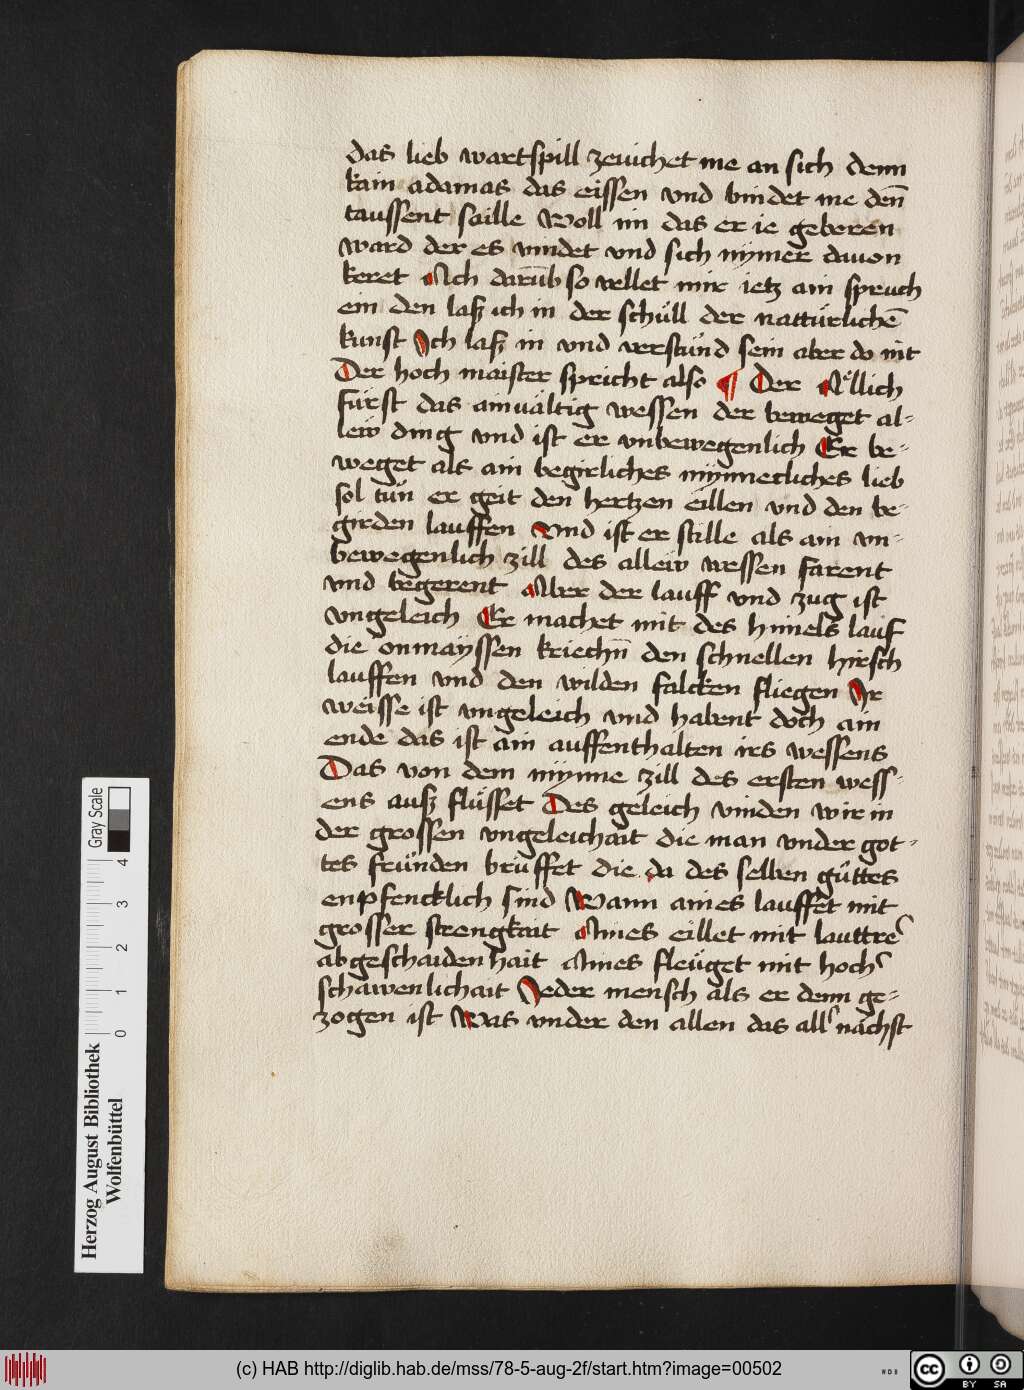 das lieb wartspill zeuichet me an sich denn
kain adamas das eissen vnd bindet me den̄
taussent saille Woll im das er ie geboren
ward der es vindet vnd sich nymer dauon
keret Ach darūb so wellet mir ietz ain spruch
ein den lasz ich in der schůll der nattürlichē
kunst Ich lasz in vnd verstůnd sein aber do nit
Der hoch maister spricht also ¶ Der Adͤllich
fürst das ainuältig wessen der beweget al-
lew ding vnd ist er vnbewegenlich Er be-
weget als ain begirliches mynnecliches lieb
sol tůn er geit den hertzen eillen vnd den be-
girden lauffen Vnd ist er stille als ain vn-
bewegenlich zill des allew wessen farent
vnd begerent Aber der lauff vnd zug ist
vngeleich Er machet mit des himels lauf
die onmayssen kriechn̄ den schnellen hirsch
lauffen vnd den wilden falcken fliegen Ir
weisse ist vngeleich vnd habent doch ain
ende das ist ain auffenthalten irs wessens
Das von dem mynne zill des ersten wess-
ens ausz flüsset Des geleich vinden wir in
der grossen vngeleichait die man vnder got-
tes fründen brüffet die da des selben gůttes
enpfencklich sind Wann aines lauffet mit
grosser strengkait Aines eillet mit lauttrer
abgeschaidenhait Aines fleüget mit hoch
schawenlichait Jeder mensch als er denn ge-
zogen ist Was vnder den allen das all nächst
Gray Scale
0 1 2 3 4
Herzog August Bibliothek
Wolfenbüttel
(c) HAB http://diglib.hab.de/mss/78-5-aug-2f/start.htm?image=00502
WDB
cc BY SA